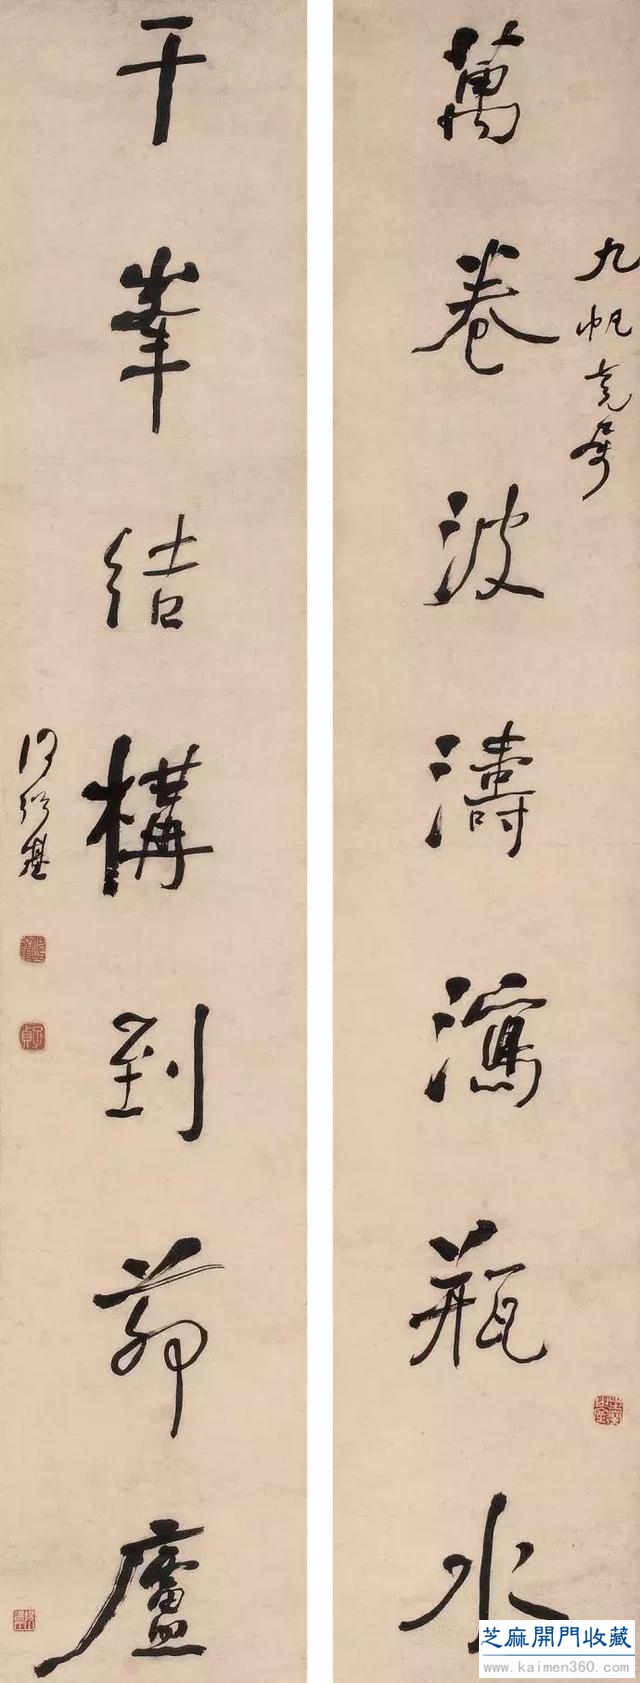 萬卷波濤瀉瓶水
九帆
千峯結構到茆廬
何紹基
子貞
芝麻開門收藏
www.kaimen360.com